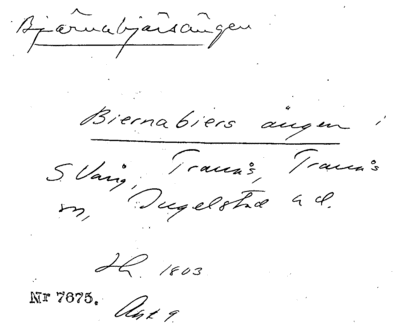 Bjärnabjärsängen
Biernabiers ängen i
S. Vång, Tranås, Tranås
sn, Ingelstad hd.
Sk. 1803
Nr 7675. Akt 9